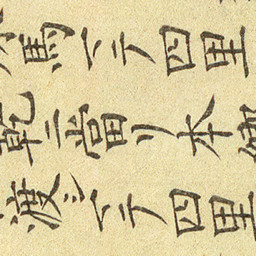 馬ニテ四里
乾ニ當リ本
渡シニテ四里